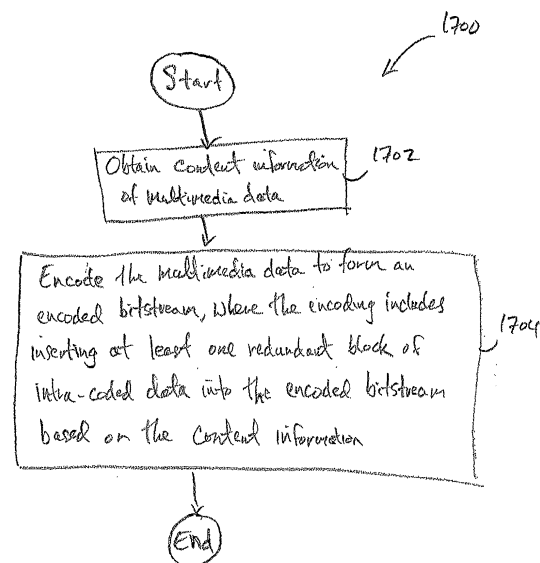 1700
Start
Obtain content information
of multimedia data
1702
Encode the multimedia data to form an
encoded bitstream, where the encoding includes
inserting at least one redundant block of
intra-coded data into the encoded bitstream
based on the content information
1704
End